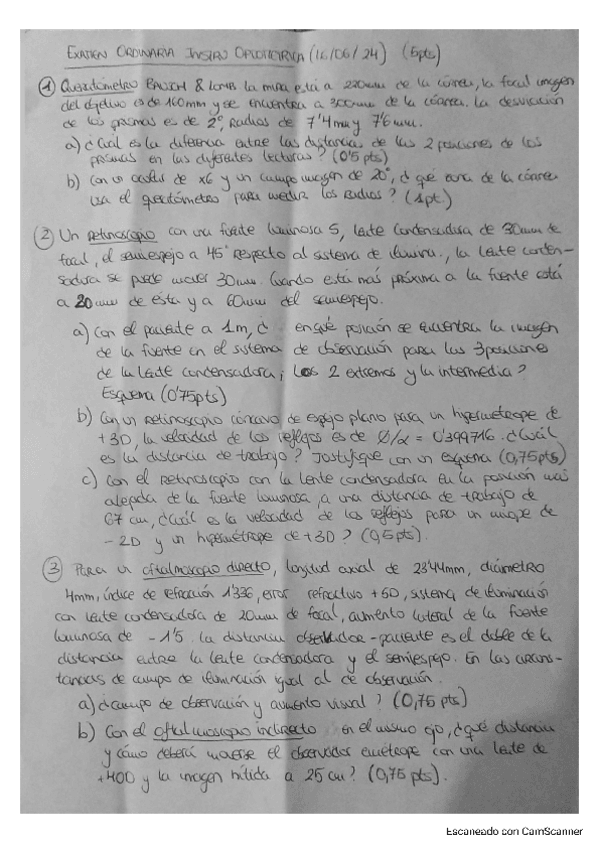 EXAMEN ORDINARIA INSTRU OPTOMETRICA (16/06/24) (5pts)
① Queratómetro BAUSCH & LOMB la mira está a 220mm de la córnea, la focal imagen
del objetivo es de 160mm y se encuentra a 300mm de la córnea. La desviación
de los prismas es de 2°, Radios de 7'4mm y 7'6mm.
a) ¿Cuál es la diferencia entre las distancias de las 2 posiciones de los
prismas en las diferentes lecturas? (0'5pts)
b) Con un ocular de x6 y un campo imagen de 20°, ¿ qué zona de la córnea
usa el queratómetro para medir los Radios? (1pt.)
② Un retinoscopio con una fuente luminosa S, lente Condensadora de 30mm de
focal, el semiespejo a 45° respecto al sistema de ilumina., la lente conden-
sadora se puede mover 30mm. Cuando está más próxima a la fuente está
a 20mm de ésta y a 60mm del semiespejo.
a) Con el paciente a 1m, ¿ en qué posición se encuentra la imagen
de la fuente en el sistema de observación para las 3 posiciones
de la lente condensadora; los 2 extremos y la intermedia?
Esquema (0'75pts)
b) Con un retinoscopio cóncavo de espejo plano para un hipermétrope de
+3D, la velocidad de los reflejos es de Ø/α = 0'399716. ¿Cuál
es la distancia de trabajo? Justifique con un esquema (0,75pts)
c) Con el Retinoscopio con la lente condensadora en la posición más
alejada de la fuente luminosa, a una distancia de trabajo de
67 cm, ¿cuál es la velocidad de los reflejos para un miope de
-2D y un hipermétrope de +3D? (0,5pts).
③ Para un oftalmoscopio directo, longitud axial de 23'44mm, diámetro
4mm, índice de refracción 1'336, error refractivo +5D, sistema de iluminación
con lente condensadora de 20mm de focal, aumento lateral de la fuente
luminosa de -1'5. La distancia observador-paciente es el doble de la
distancia entre la lente condensadora y el semiespejo. En las circuns-
tancias de campo de iluminación igual al de observación.
a) ¿Campo de observación y aumento visual? (0,75 pts)
b) Con el oftalmoscopio indirecto en el mismo ojo, ¿qué distancia
y cómo deberá moverse el observador emétrope con una lente de
+40D y la imagen nítida a 25 cm? (0,75 pts).
Escaneado con CamScanner